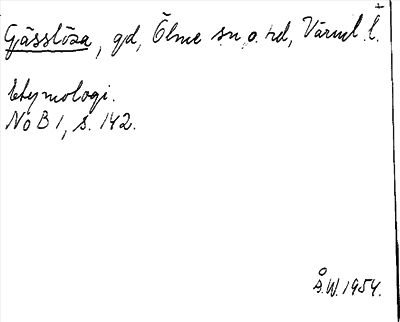 Gjässlösa, gd, Ölme sn o. hd, Värml. l.
Etymologi.
NoB 1, s. 142.
Å.W. 1954.